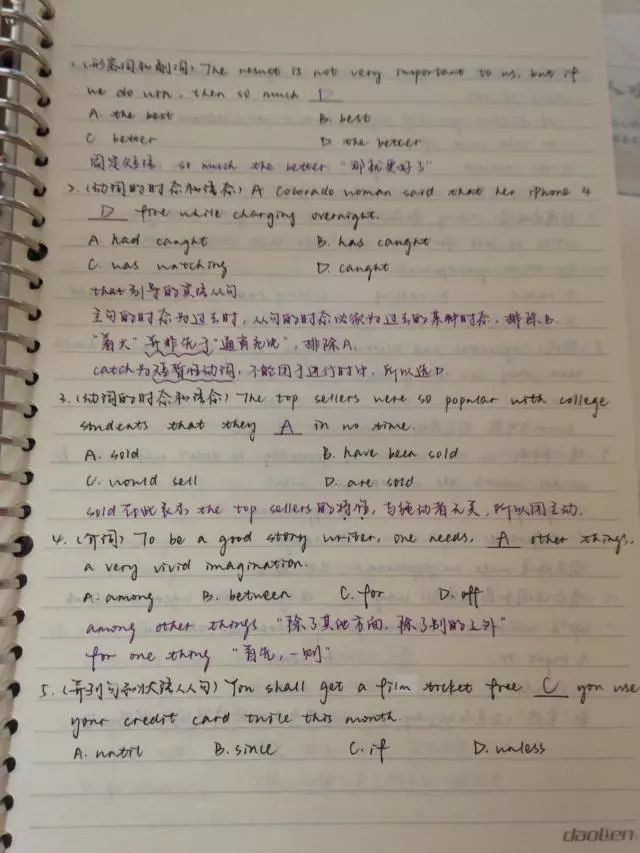 1.(形容词和副词) The result is not very important to us, but if
we do win, then so much D
A. the best B. best
C. better D. the better
固定短语, so much the better "那就更好了"
2.(动词的时态和语态) A Colorado woman said that her iphone 4
D fire while charging overnight.
A. had caught B. has caught
C. was watching D. caught
that引导的宾语从句
主句的时态为过去时,从句的时态必须为过去的某种时态,排除B.
"着火"并非先于"通宵充电",排除A.
catch为短暂性动词,不能用于进行时中,所以选D.
3.(动词的时态和语态) The top sellers were so popular with college
students that they A in no time.
A. sold B. have been sold
C. would sell D. are sold
sold在此表示 the top sellers的特性,与施动者无关,所以用主动.
4.(介词) To be a good story writer, one needs, A other things,
a very vivid imagination.
A. among B. between C. for D. off
among other things "除了其他方面,除了别的之外"
for one thing "首先,一则"
5.(并列句和状语从句) You shall get a film ticket free C you use
your credit card twice this month.
A. until B. since C. if D. unless
daolien